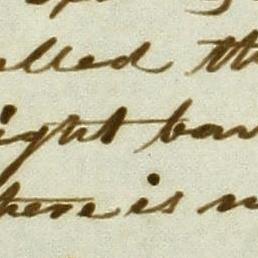 elled th
ight ban
here is n